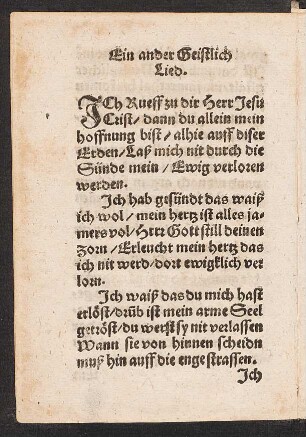 Ein ander Geistlich
Lied.
ICh Rueff zu dir Herr Jesu
Crist/ dann du allein mein
hoffnung bist/ alhie auff diser
Erden/ Laß mich nit durch die
Sünde mein/ Ewig verloren
werden.
Ich hab gesündt das waiß
ich wol/ mein hertz ist alles ja-
mers vol/ Herr Gott still deinen
zorn/ Erleucht mein hertz das
ich nit werd/ dort ewigklich ver
lorn.
Ich waiß das du mich hast
erlöst/ drüb ist mein arme Seel
getröst/ du werst sy nit verlassen
Wann sie von hinnen scheidn
muß hin auff die enge strassen.
Ich